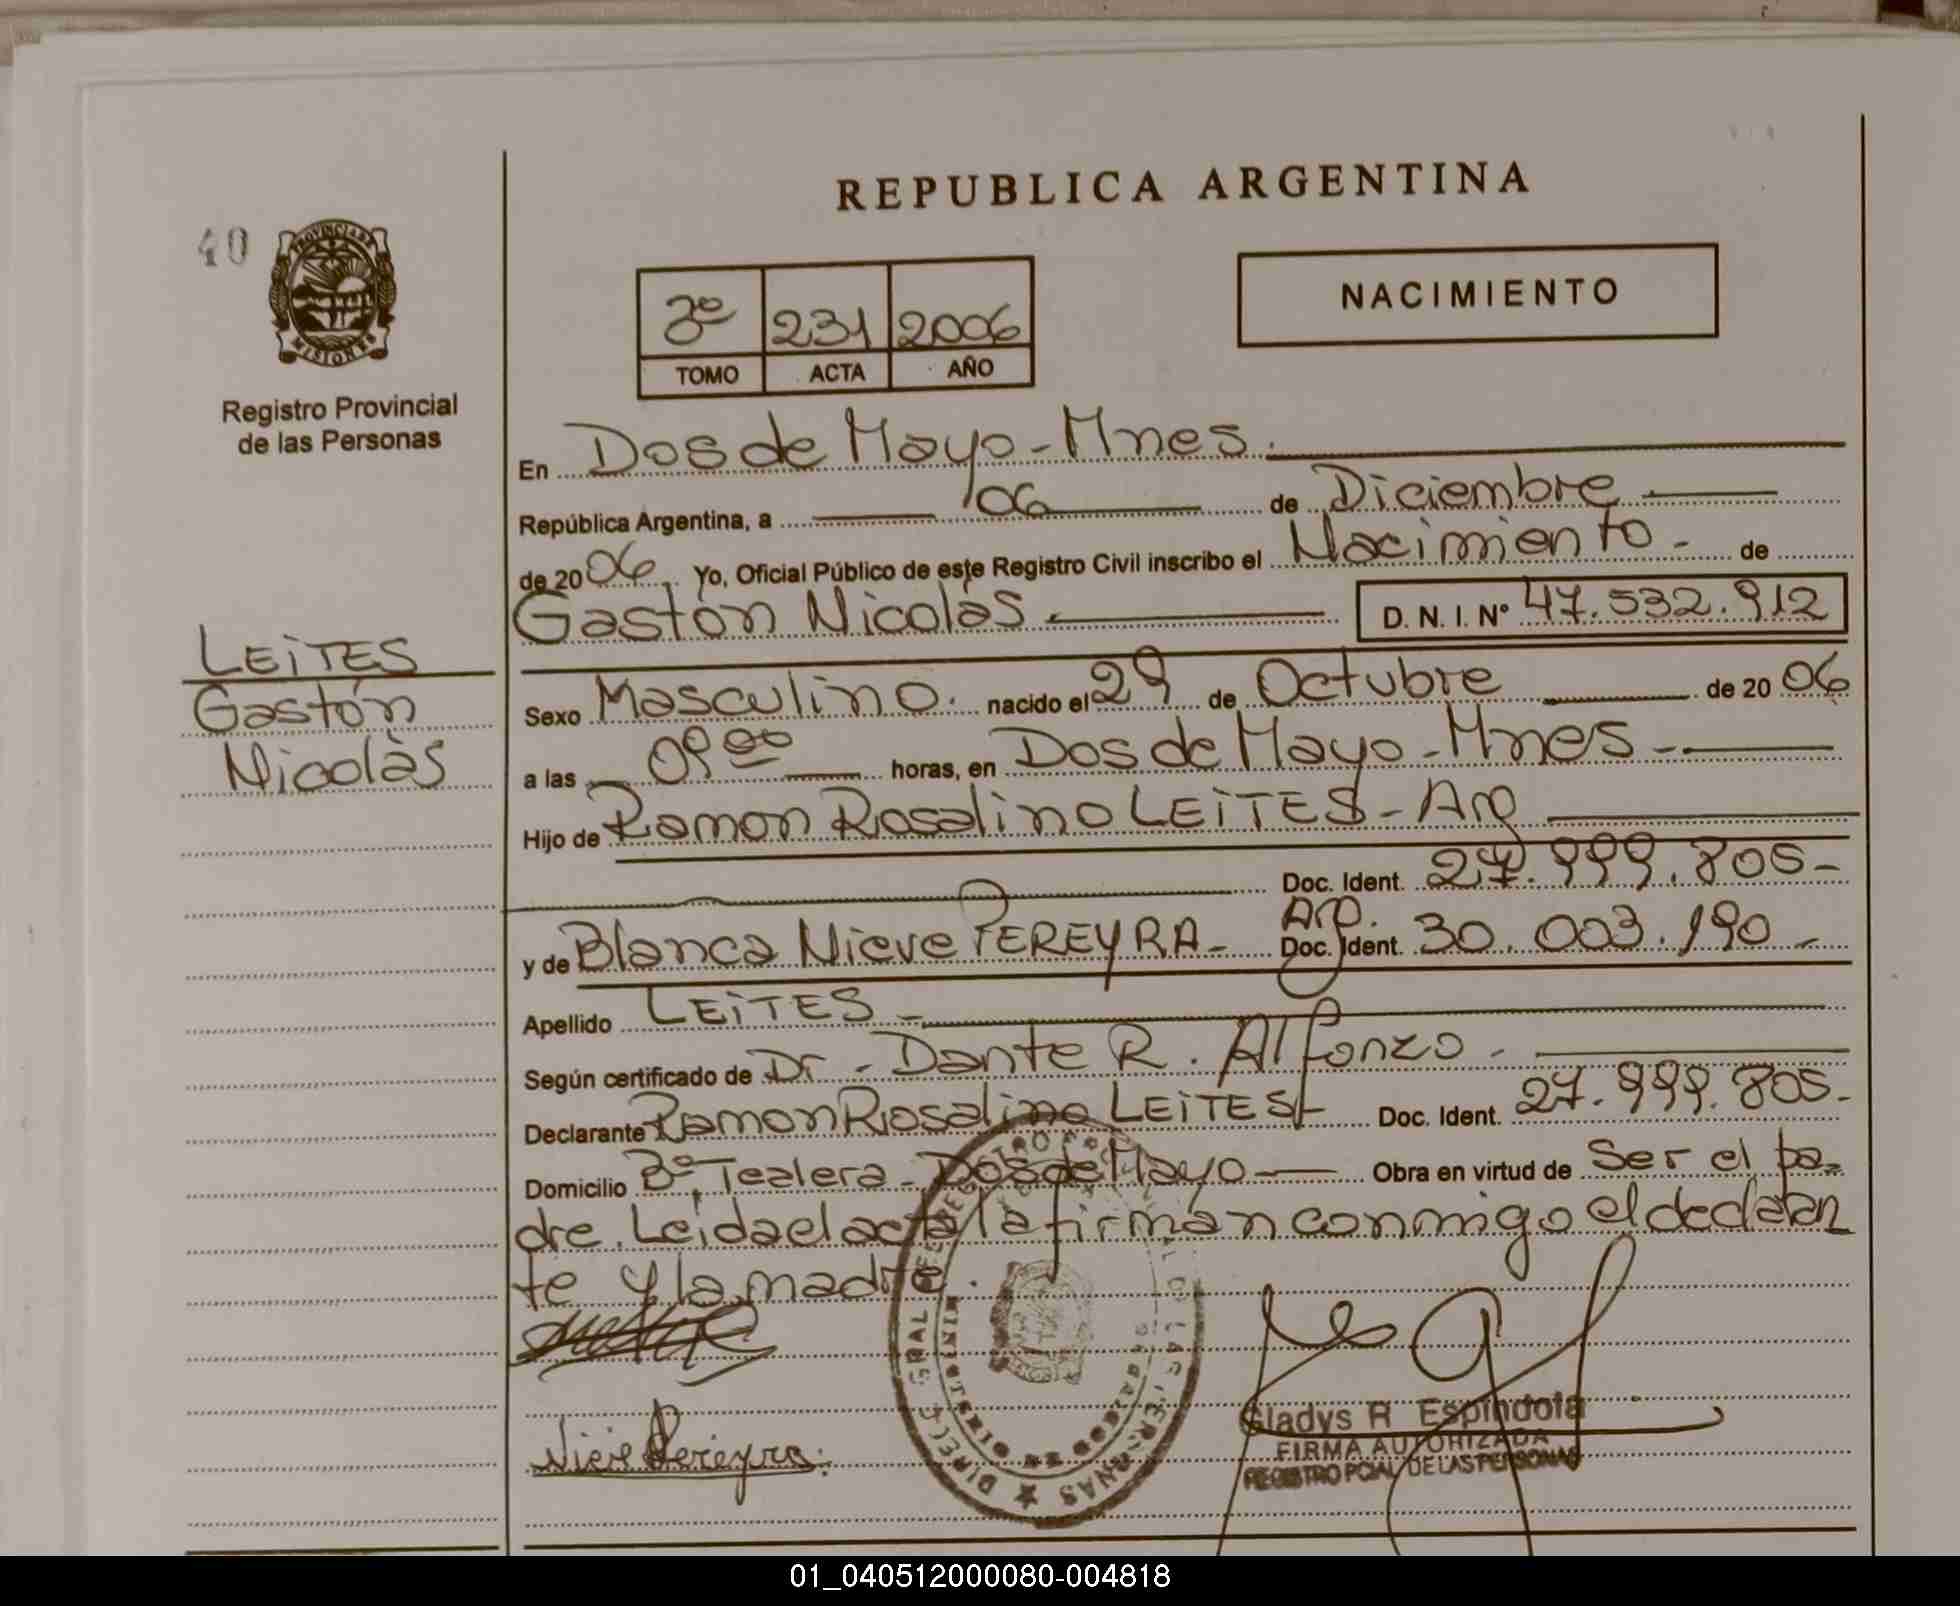 REPUBLICA ARGENTINA
40
PROVINCIA DE
MISIONES
Registro Provincial
de las Personas
3º 231 2006
TOMO ACTA AÑO
NACIMIENTO
En Dos de Mayo - Mnes.
República Argentina, a 06 de Diciembre
de 2006 Yo, Oficial Público de este Registro Civil inscribo el Nacimiento - de
Gastón Nicolás D. N. I. Nº 47.532.912
LEiTES
Gastón
Nicolàs
Sexo Masculino. nacido el 29 de Octubre de 2006
a las 09 00 horas, en Dos de Mayo - Mnes -
Hijo de Ramon Rosalino LEiTES - Arg
Doc. Ident. 27.999.805 -
y de Blanca Nieve PEREYRA - Arg. Doc. Ident. 30.003.190 -
Apellido LEiTES -
Según certificado de Dr - Dante R. Alfonzo -
Declarante Ramon Rosalino LEiTES - Doc. Ident. 27.999.805 -
Domicilio Bº Tealera - Dos de Mayo - Obra en virtud de Ser el pa-
dre. Leida el acta la firman conmigo el declaran
te y la madre.
Pereyra.
Gladys R Espindola
FIRMA AUTORIZADA
REGISTRO PCIAL DE LAS PERSONAS
01_040512000080-004818